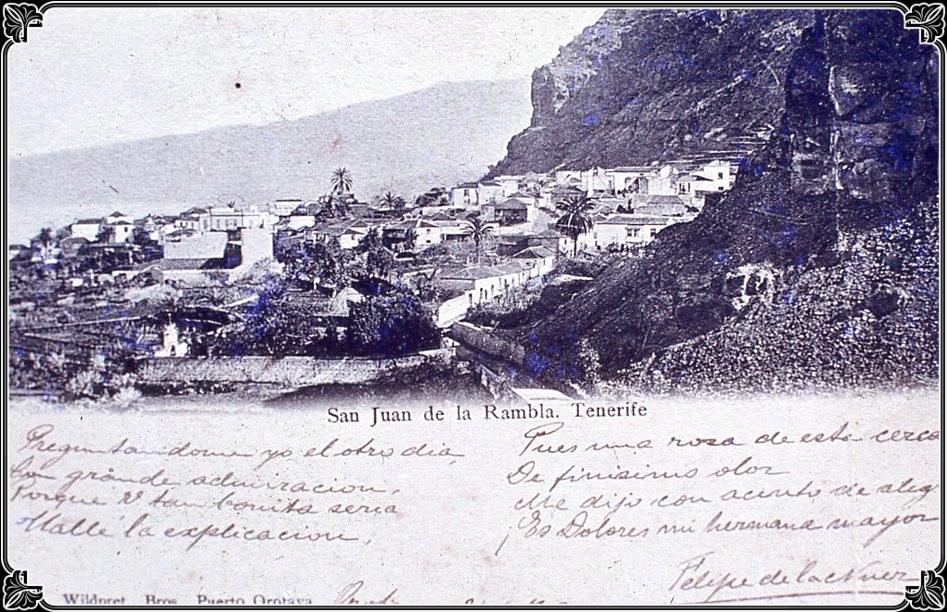 San Juan de la Rambla. Tenerife
Preguntandome yo el otro dia,
Con grande admiracion,
Porque V. tan bonita seria
Hallé la explicacion,
Pues una rosa de este cerca
De finisimo olor
Me dijo con acento de aleg
Es Dolores mi hermana mayor
Felipe de la
Wildpret Bros. Puerto Orotava